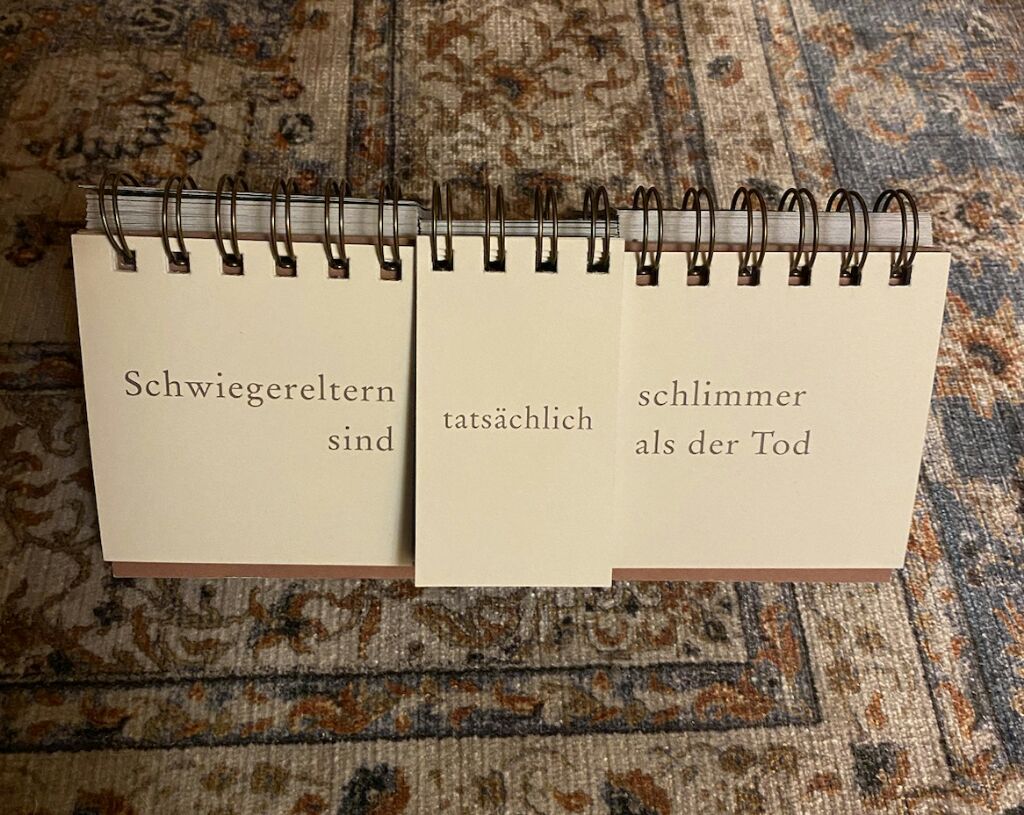 Schwiegereltern
sind
tatsächlich
schlimmer
als der Tod